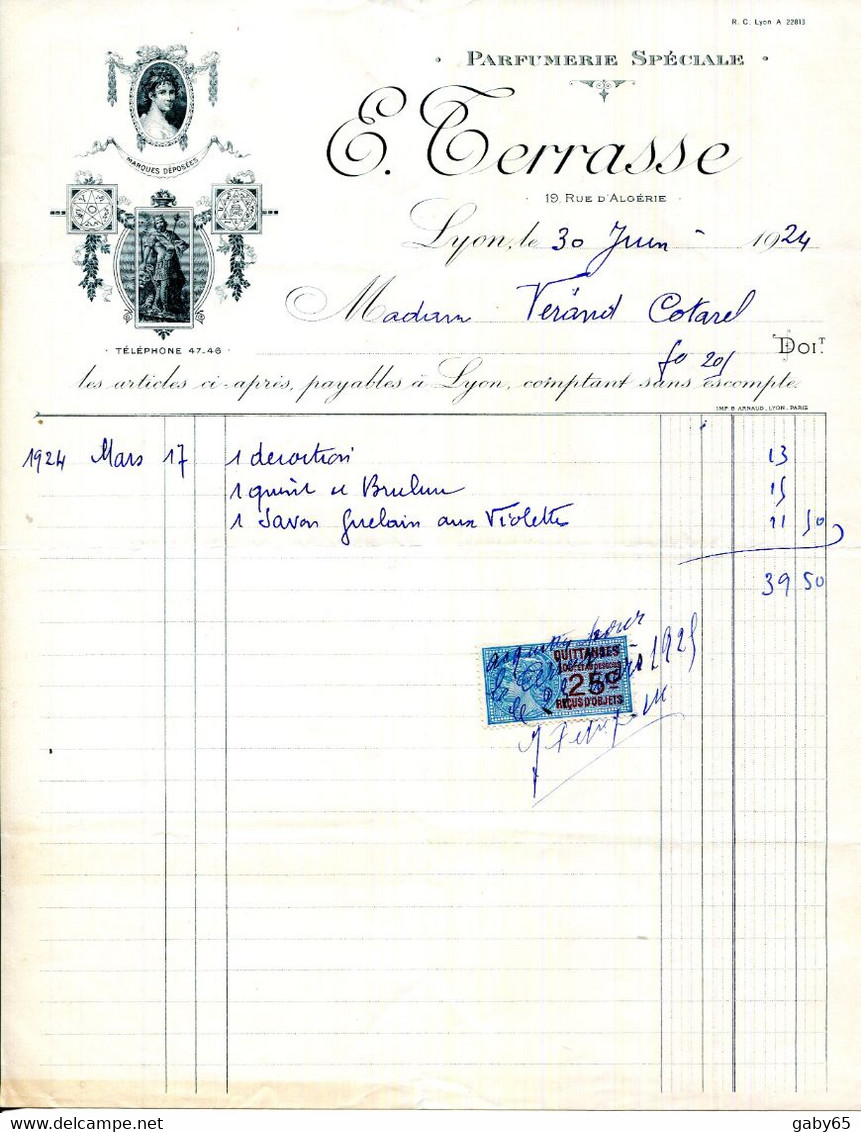 R. C. Lyon A 22813
PARFUMERIE SPÉCIALE
E. Terrasse
MARQUES DÉPOSÉES
19, RUE D'ALGÉRIE
Lyon, le 30 Juin 1924
Madame Verand Cotarel
TÉLÉPHONE 47-46
fo 201
DOIT
les articles ci-après, payables à Lyon, comptant sans escompte.
IMP. B. ARNAUD, LYON-PARIS
1924 Mars 17 1 decoction 13
1 15
1 Savon Guelain aux Violettes 11 50
39 50
pour
QUITTANCES
le 1925
25c
REÇUS D'OBJETS
gaby65